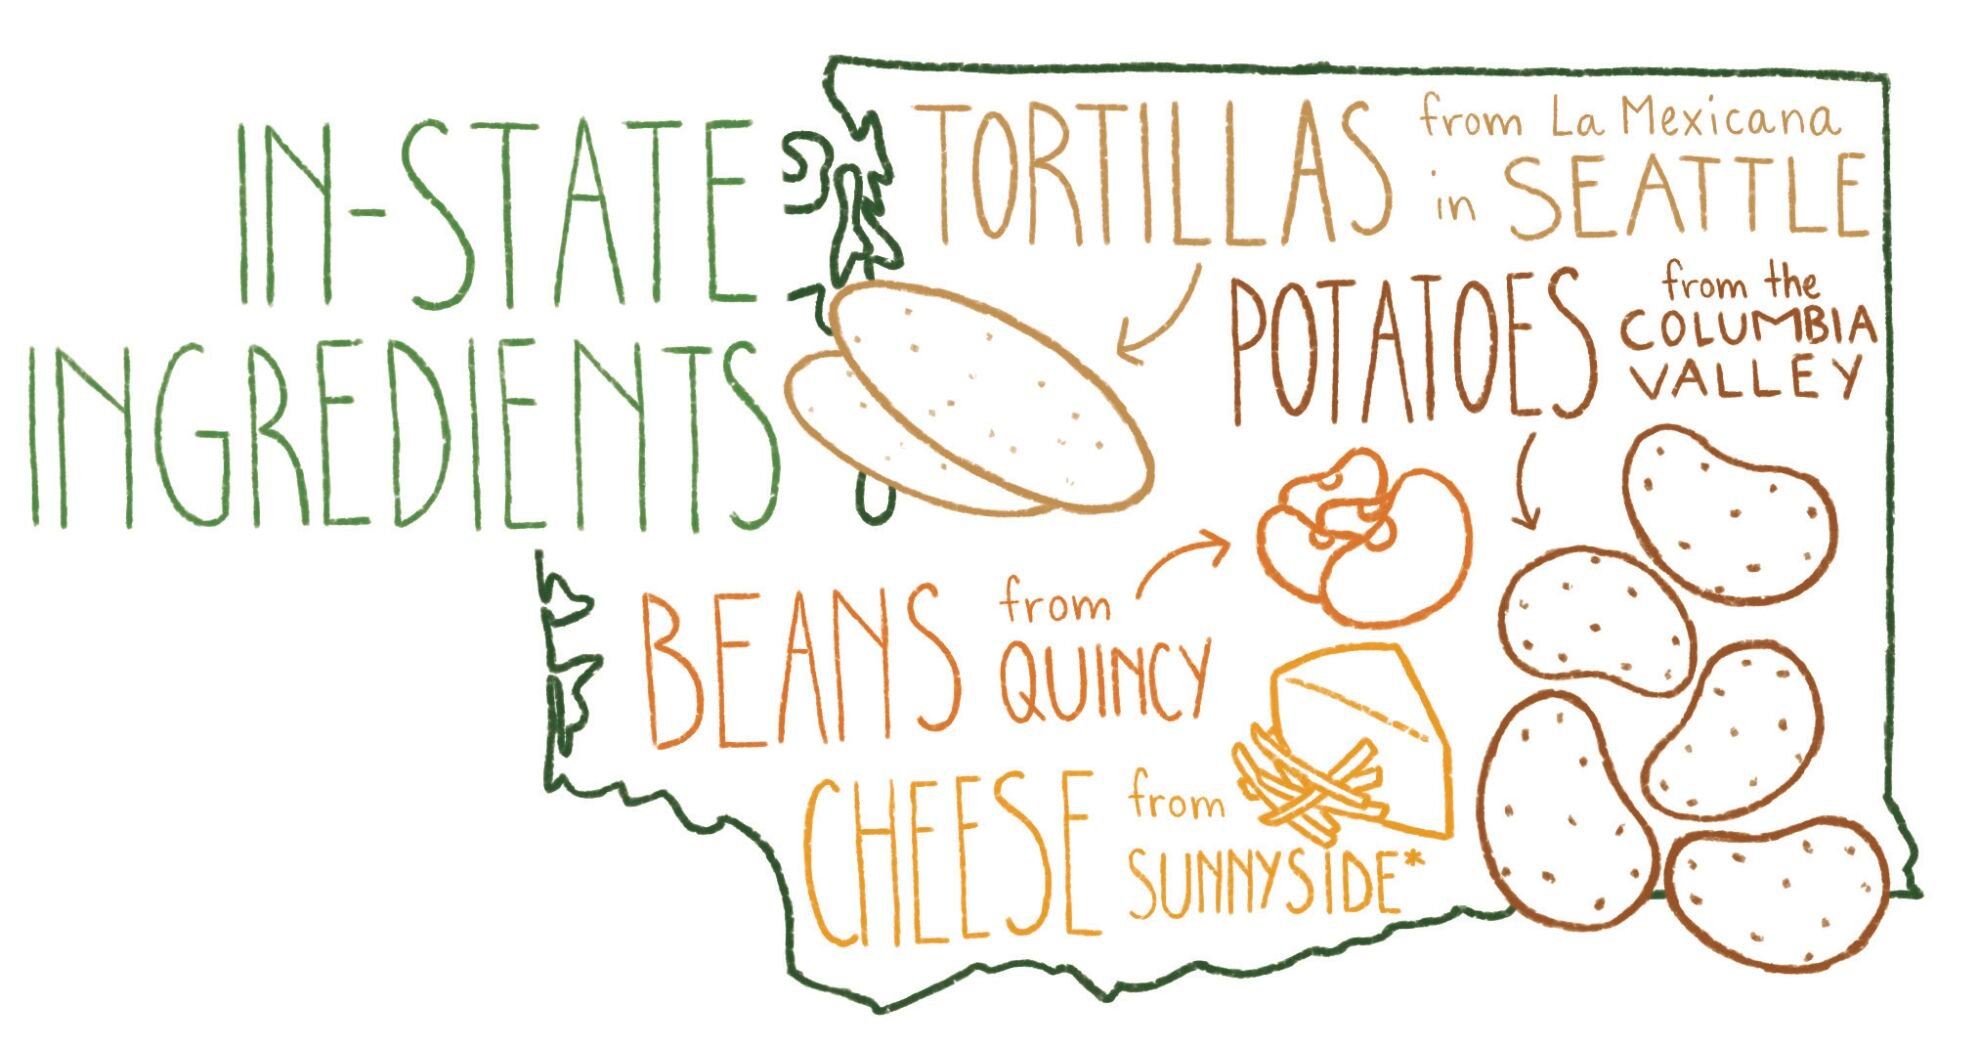 IN-STATE
INGREDIENTS
TORTILLAS from La Mexicana
in SEATTLE
POTATOES from the
COLUMBIA
VALLEY
BEANS from
QUINCY
CHEESE from
SUNNYSIDE*